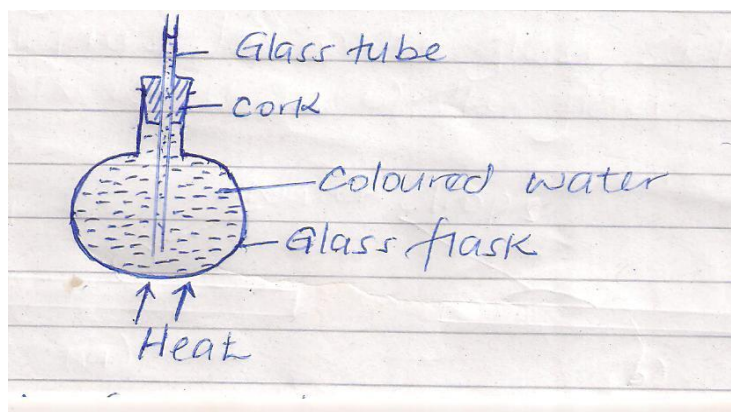 Glass tube
cork
Coloured water
Glass flask
Heat